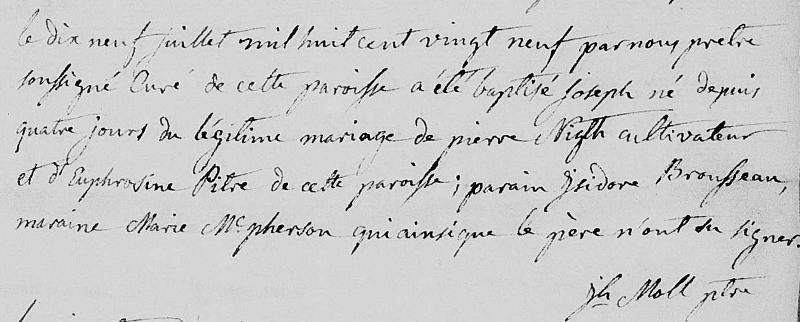 le dix neuf juillet mil huit cent vingt neuf par nous prêtre
soussigné Curé de cette paroisse a été baptisé joseph né depuis
quatre jours du légitime mariage de pierre Nigth cultivateur
et d'Euphrosine Pitre de cette paroisse; parain jsidore Brousseau,
maraine Marie Mcpherson qui ainsi que le père n'ont su signer.
jh Moll ptre